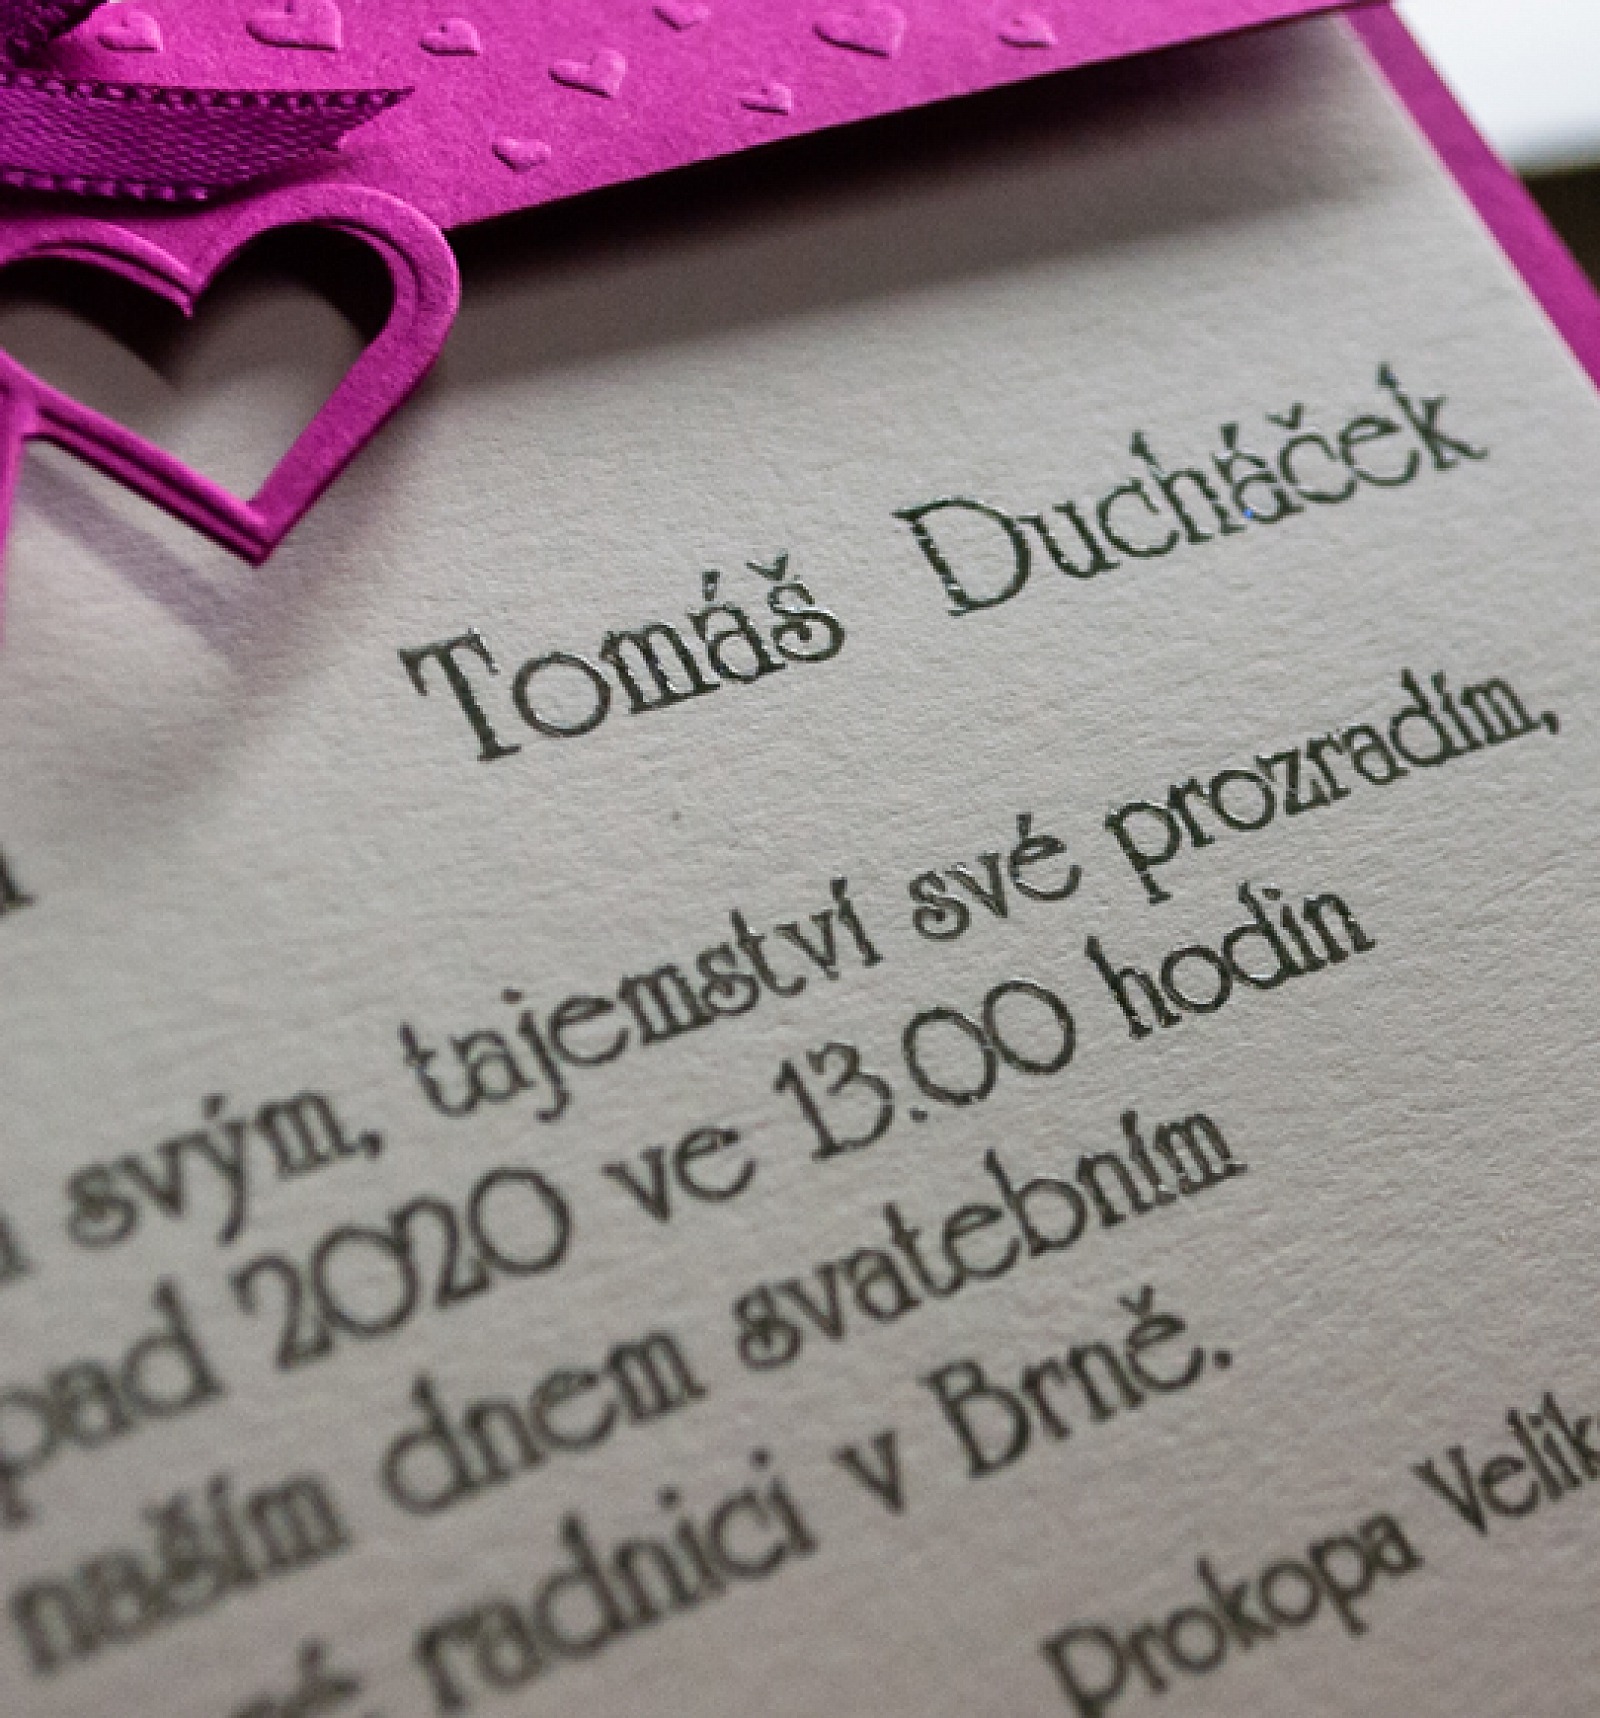 Tomáš Ducháček
svým, tajemství své prozradím,
pad 2020 ve 13.00 hodin
naším dnem svatebním
radnici v Brně.
Prokopa Velik